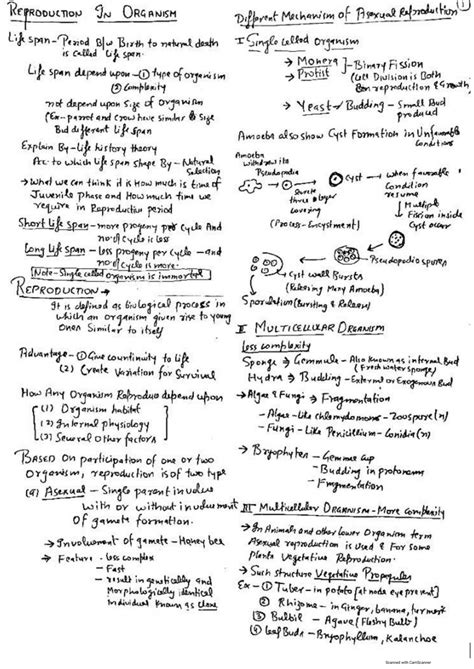 REPRODUCTION IN ORGANISM
Life span - Period B/w Birth to natural death
is Called Life span.
Life span depend upon - (1) Type of organism
(2) Complexity
not depend upon Size of Organism
(Ex - parrot and crow have similar Size
But different Life span
Explain By - Life history theory
Acc to which Life span shape By - Natural
Selection
→ What we can think it is How much is time of
Juvenile phase and How much time we
require in Reproductive period
Short Life span - more progeny per cycle And
no. of cycle is less
Long Life span - less progeny per cycle - and
no. of cycle is more.
Note - Single celled organism is immortal
REPRODUCTION →
It is defined as biological process in
which an organism given rise to young
ones Similar to itself
Advantage - (1) Give countinuity to life
(2) Create Variation for Survival
How Any Organism Reproduce depend upon
(1) Organism habitat
(2) Internal physiology
(3) Several Other factors
BASED ON participation of one or two
ORganism, reproduction is of two type
(a) Asexual - Single parent involve
with or without involvement
Of gamete formation.
→ Involvement of gamete - Honey bee
→ Feature - less complex
- Fast
- result in genetically and
Morphologically identical
Individual known as Clone
Different Mechanism of Asexual Reproduction
1
I Single Celled Organism
→ Monera
→ Protist
Binary Fission
(Cell Division is Both
reproduction & Growth)
→ Yeast - Budding - Small Bud
produced
Amoeba also show Cyst Formation in Unfavourable
Conditions
Amoeba
withdraw its
Pseudopodia
Secrete
three layer
Covering
(Process - Encystment)
Cyst
when favourable
Condition
resume
Multiple
Fission inside
Cyst occur
Pseudopodiospores
Cyst wall Bursts
(Releasing Many Amoeba)
Sporulation (Bursting & Release)
II MULTICELLULAR ORGANISM
Less complexity
Sponge → Gemmule - Also known as internal Bud
(Fresh water sponge)
Hydra → Budding - External or Exogenous Bud
→ Algae & Fungi → Fragmentation
- Algae - Like chlamydomonas - Zoospore (n)
- Fungi - Like Penicillium - Conidia (n)
→ Bryophytes - Gemmae cup
- Budding in protonema
- Fragmentation
III MULTICELLULAR ORGANISM - More complexity
→ In Animals and other Lower Organism term
Asexual reproduction is Used & For some
Plants Vegetative Reproduction.
→ Such structure Vegetative Propagules
Ex - (1) Tuber - in potato [at node eye present]
(2) Rhizome - in Ginger, banana, turmeric
(3) Bulbil - Agave (Fleshy Bulb)
(4) Leaf Buds - Bryophyllum, Kalanchoe
Scanned with CamScanner